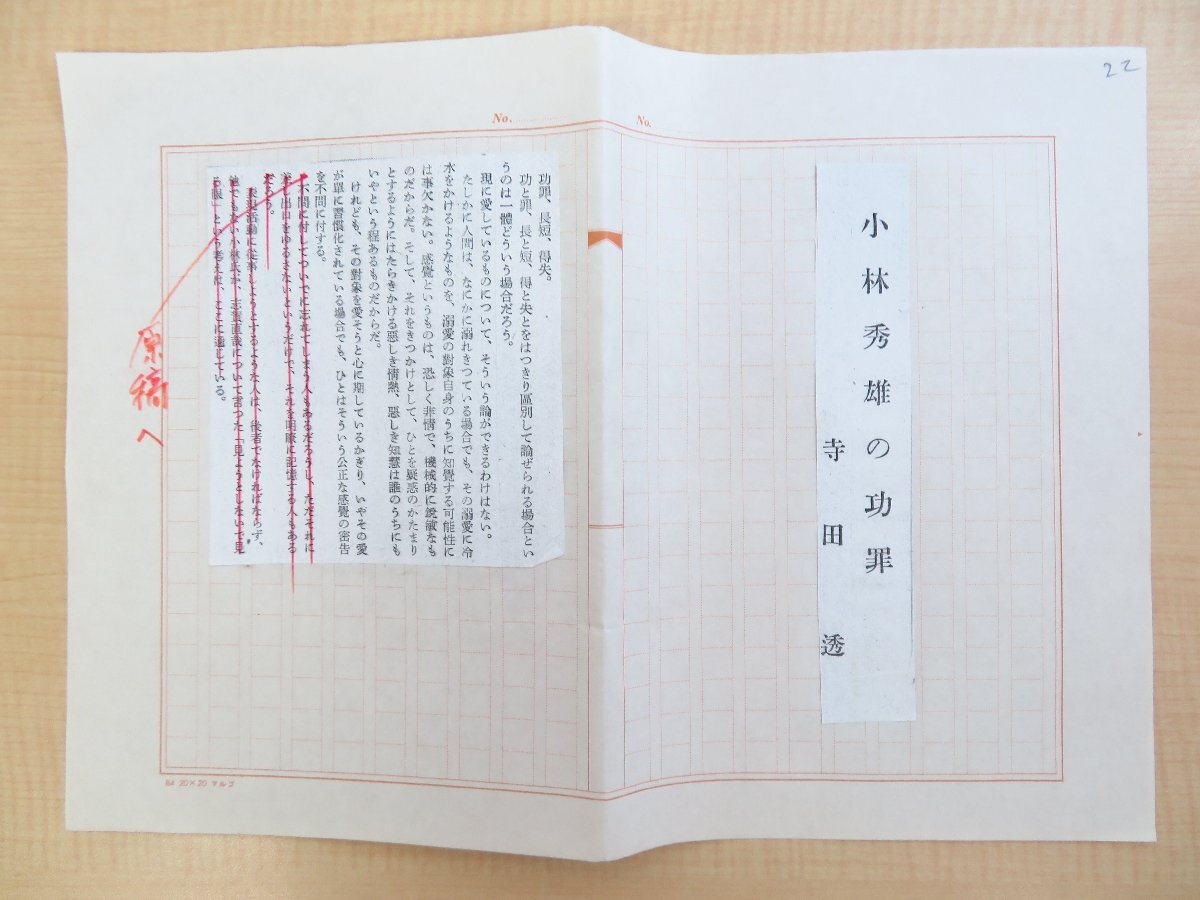 22
No.
No.
小林秀雄の功罪
寺田透
功罪、長短、得失。
功と罪、長と短、得と失とをはつきり區別して論ぜられる場合とい
うのは一體どういう場合だろう。
現に愛しているものについて、そういう論ができるわけはない。
たしかに人間は、なにかに溺れきつている場合でも、その溺愛に冷
水をかけるようなものを、溺愛の對象自身のうちに知覺する可能性に
は事欠かない。感覺というものは、恐しく非情で、機械的に鋭敏なも
のだからだ。そして、それをきつかけとして、ひとを疑惑のかたまり
とするようにはたらきかける惡しき情熱、惡しき知慧は誰のうちにも
いやという程あるものだからだ。
けれども、その對象を愛そうと心に期しているかぎり、いやその愛
が單に習慣化されている場合でも、ひとはそういう公正な感覺の密告
を不問に付する。
不問に付してついでに忘れてしまう人もあるだろうし、ただそれに
出口をゆるさないというだけで、それを明瞭に記憶する人もある
だろう。
表現活動に從事しようとするような人は、後者でなければならず、
他でもない小林氏が、志賀直哉について言つた「見ようとしないで見
る眼」という考えは、ここに通じている。
原稿へ
B4 20×20 マルゴ